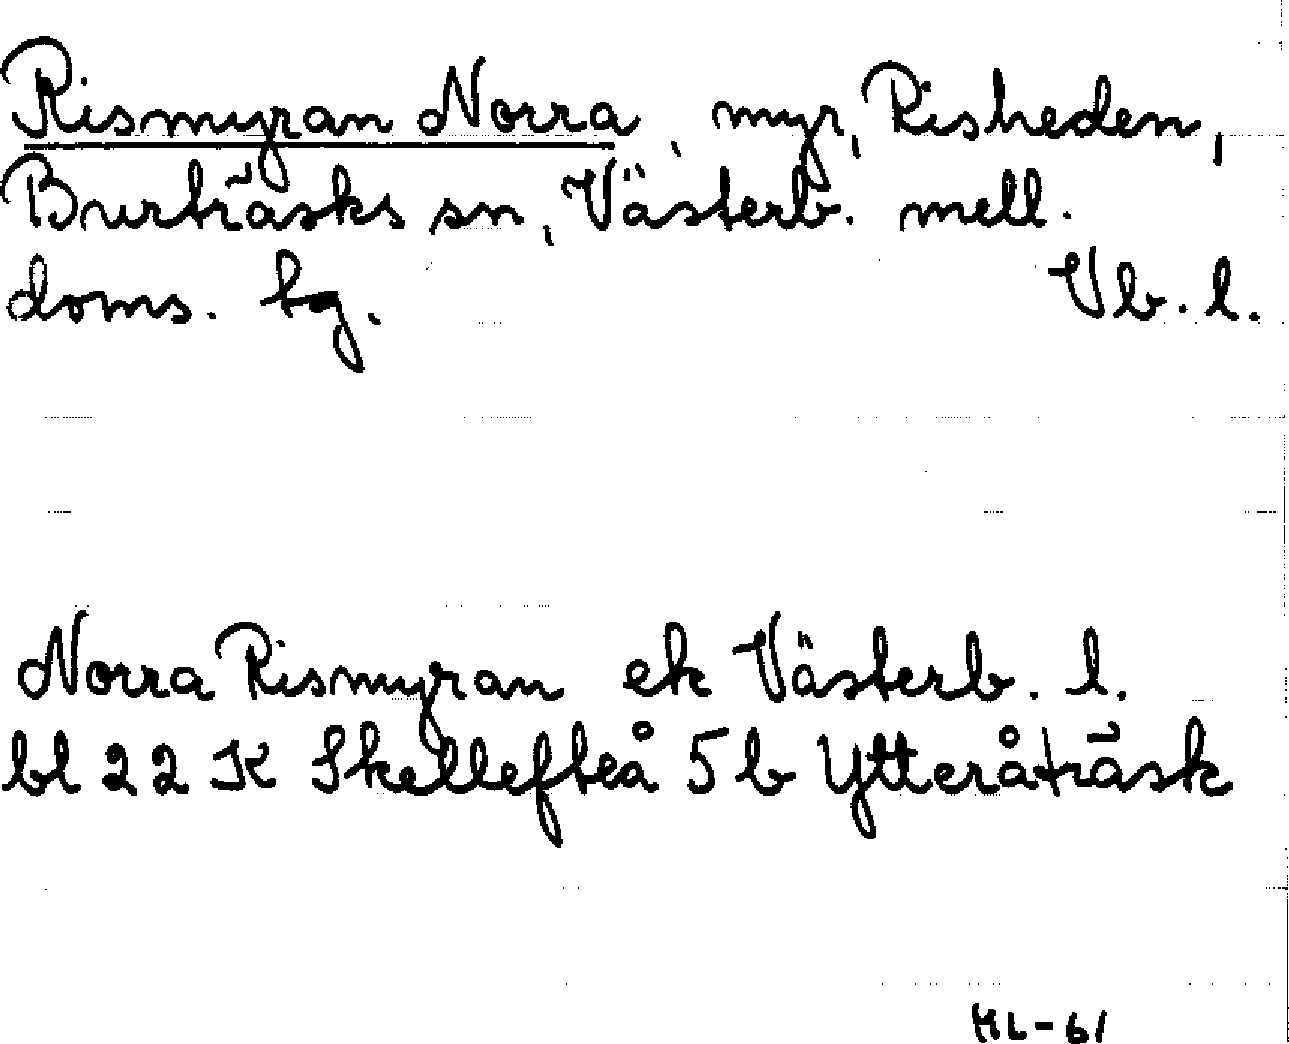 Rismyran Norra, myr, Risheden,
Burträsks sn, Västerb. mell.
doms. tg. Vb. l.
Norra Rismyran ek Västerb. l.
bl 22 K Skellefteå 5 b Ytteråträsk
HL-61